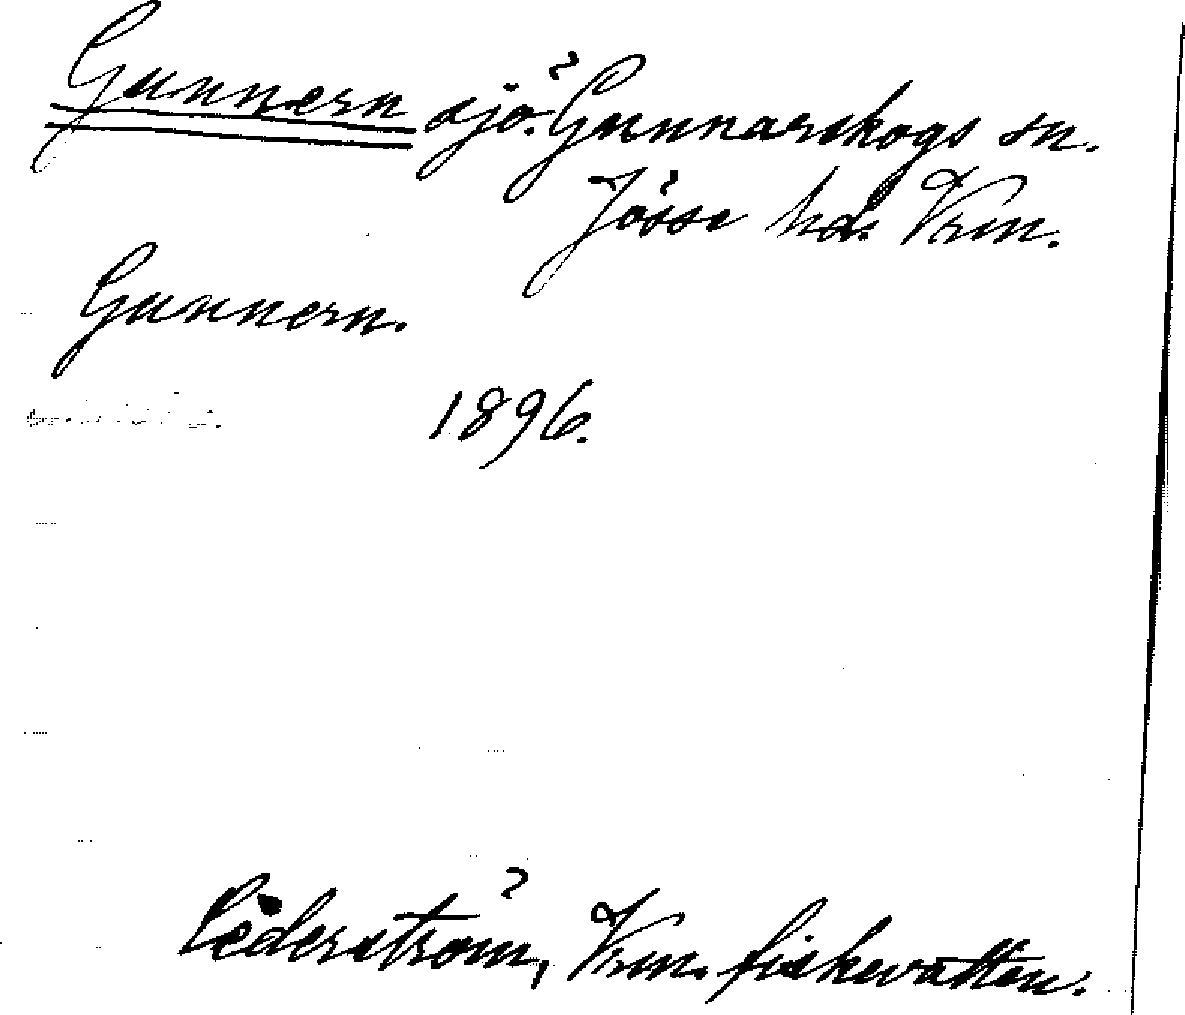 Gunnern sjö. Gunnarskogs sn.
Jösse hd. Vrm.
Gunnern.
1896.
Cederström, Vrm. fiskevatten.